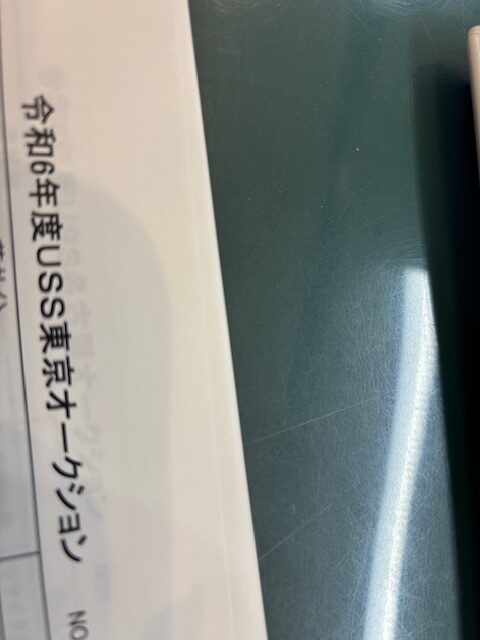 令和6年度USS東京オークション NO